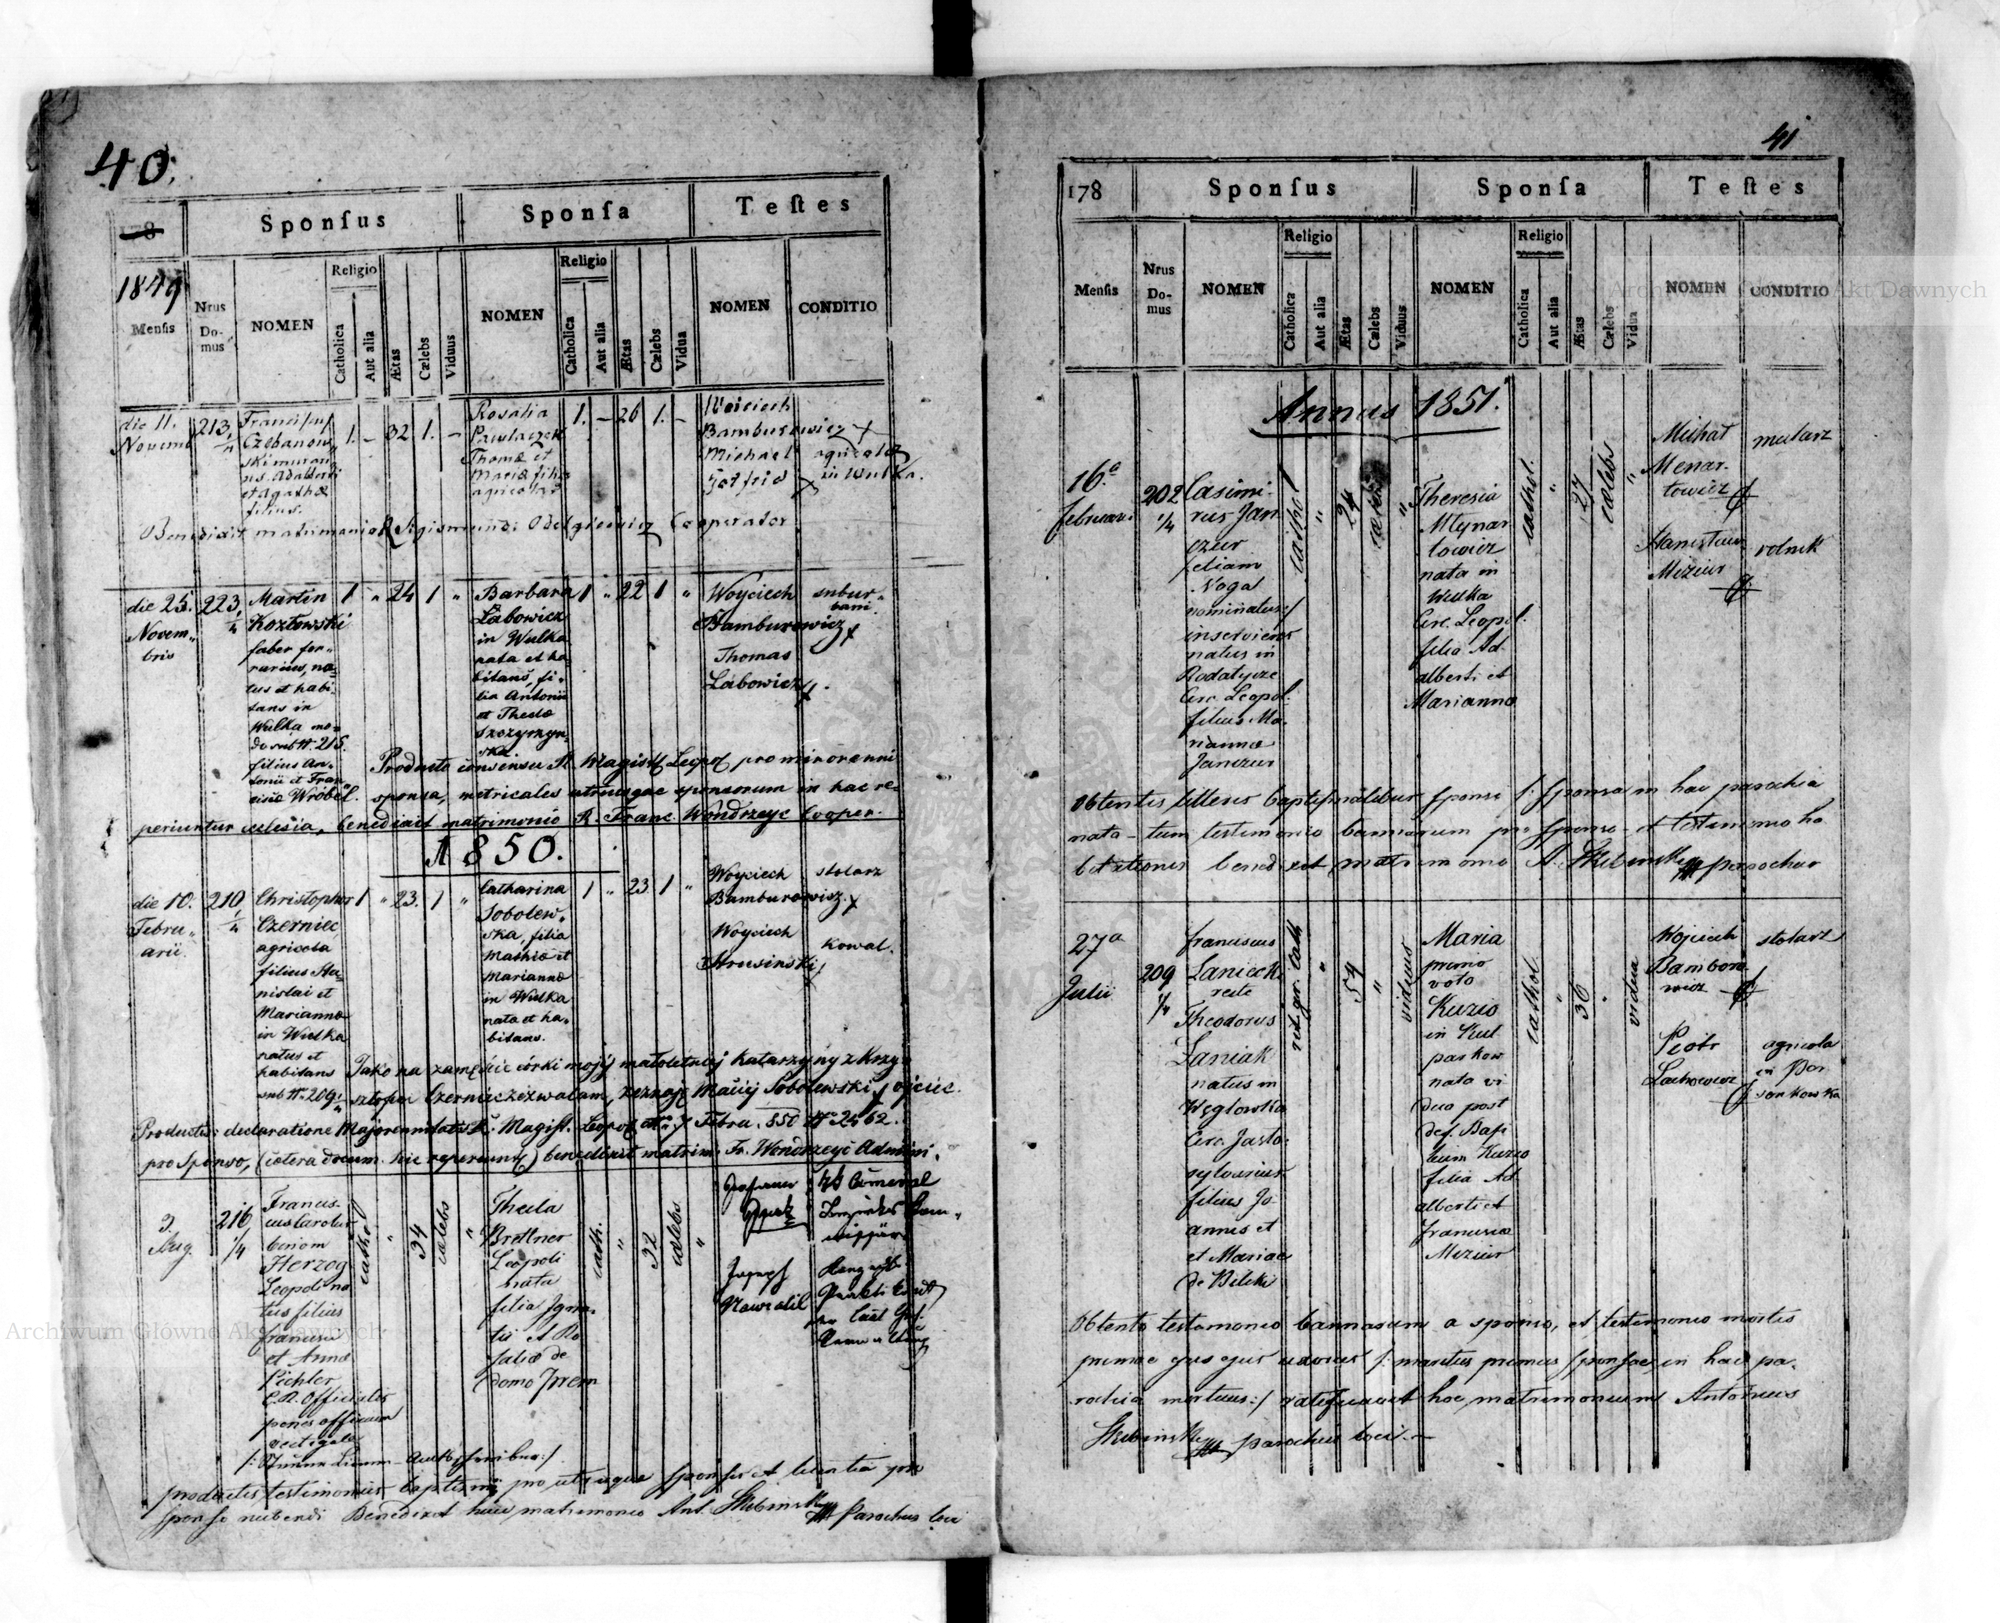 40.
178
Sponsus
Sponsa
Testes
1849
Mensis
Nrus Do-mus
NOMEN
Religio
Catholica
Aut alia
Ætas
Cælebs
Viduus
NOMEN
Religio
Catholica
Aut alia
Ætas
Cælebs
Vidua
NOMEN
CONDITIO
die 11.
Novemb
213,
1/4
1. – 32 1. –
Rosalia
Pawlaczek
Thomæ et
Mariæ filia
agricolæ
1. – 26 1. –
Woiciech
Bamburowicz
Michael
agricola
in Wulka.
Benedixit matrimonio R. Sigismundi Cooperator
die 25.
Novem„
bris
223,
1/4
Martin
Kozłowski
faber fer„
rarius, na„
tus et habi„
tans in
Wulka mo„
do sub N. 215
filius An„
tonii et Fran„
ciscæ Wróbel.
1 „ 24 1 „
Barbara
Łabowicz
in Wulka
nata et ha„
bitans, fi„
lia Antonii
et Theclæ
Szczyrzyn„
ska.
1 „ 22 1 „
Woyciech
Bamburowicz
Thomas
Łabowicz
subur„
bani.
Producto consensu Magist Leopol pro minorenni
sponsa, metricales utriusque sponsorum in hac re„
periuntur ecclesia, benedixit matrimonio R. Franc. Wondrzeyc Cooper.
1850.
die 10.
Febru„
arii
210,
1/4
Christophor
Czerniec
agricola
filius Sta„
nislai et
Mariannæ
in Wulka
natus et
habitans
sub N. 209 1/4
1 „ 23. 1 „
Catharina
Sobolew„
ska, filia
Mathiæ et
Mariannæ
in Wulka
nata et ha„
bitans.
1 „ 23 1 „
Woyciech
Bamburowicz
Woyciech
Strusinski
stolarz
Kowal.
Jako na zamęście córki mojéj małoletniéj Katarzyny z Krzy„
sztofem Czerniec zezwalam, zeznaję Maciej Sobolewski ojciec.
Producta declaratione Majorennitatis Magist. Leopol Febra. 850 N 2462.
pro Sponso, (cætera docum. hic reperiunt) benedixit matrim. Fr. Wondrzeyc Admini.
Aug.
216,
1/4
Francis-
cus Carolus
Herzog
Leopoli na
tus filius
Francisci
et Annæ
Pichler
C.R. Officialis
penes officium
cathol
„
34
cælebs
„
Thecla
Brettner
Leopoli
nata
filia Igna
tii et Ro
saliæ de
domo
cath.
„
32
cælebs
„
Joseph
Nawratil
productis testimoniis baptismi pro utroque sponso et licentia pro
sponso nubendi Benedixit huic matrimonio Ant. Skibinski Parochus loci
41
178
Sponsus
Sponsa
Testes
Mensis
Nrus Do-mus
NOMEN
Religio
Catholica
Aut alia
Ætas
Cælebs
Viduus
NOMEN
Religio
Catholica
Aut alia
Ætas
Cælebs
Vidua
NOMEN
CONDITIO
Annus 1851.
16a
februari
202
1/4
Casimi-
rus Jan
czur
etiam
Noga
nominatus:/
inserviens
natus in
Rodatycze
Circ. Leopol.
filius Ma-
riannæ
Janczur
cathol
„
24
„
Theresia
Młynar
towicz
nata in
Wulka
Circ. Leopol.
filia Ad
alberti et
Mariannæ
cathol.
„
27
cælebs
„
Michał
Menar-
towicz
Stanisław
Miziur
mularz
rolnik
Obtentis litteris baptismalibus sponsi /: sponsa in hac parochia
nata – tum testimonio bannorum pro sponso – et testimonio ha
bitationis benedixit matrimonio A. Skibinski parochus
27a
Julii
209
1/4
franciscus
recte
Theodorus
Łaniak
natus in
Węglowka
Circ. Jasło-
filius Jo-
annis et
et Mariæ
de Bilcki
rit. gr. cath
„
54
„
viduus
Maria
primo
voto
Kuzio
in Kul
parkow
nata vi
dua post
def. Basi
lium Kuzio
filia Ad
alberti et
Franciscæ
Miziur
cathol.
„
36
„
vidua
Wojciech
Bamboro
wicz
Piotr
Lachowicz
stolarz
agricola
in Per
senkowka
Obtento testimonio bannorum a sponso, et testimonio mortis
primæ ejus uxoris /: maritus primus sponsæ in hac pa-
rochia mortuus:/ ratificavit hoc matrimonium Antonius
Skibinski parochus loci.–
Archiwum Główne Akt Dawnych
Archiwum Główne Akt Dawnych